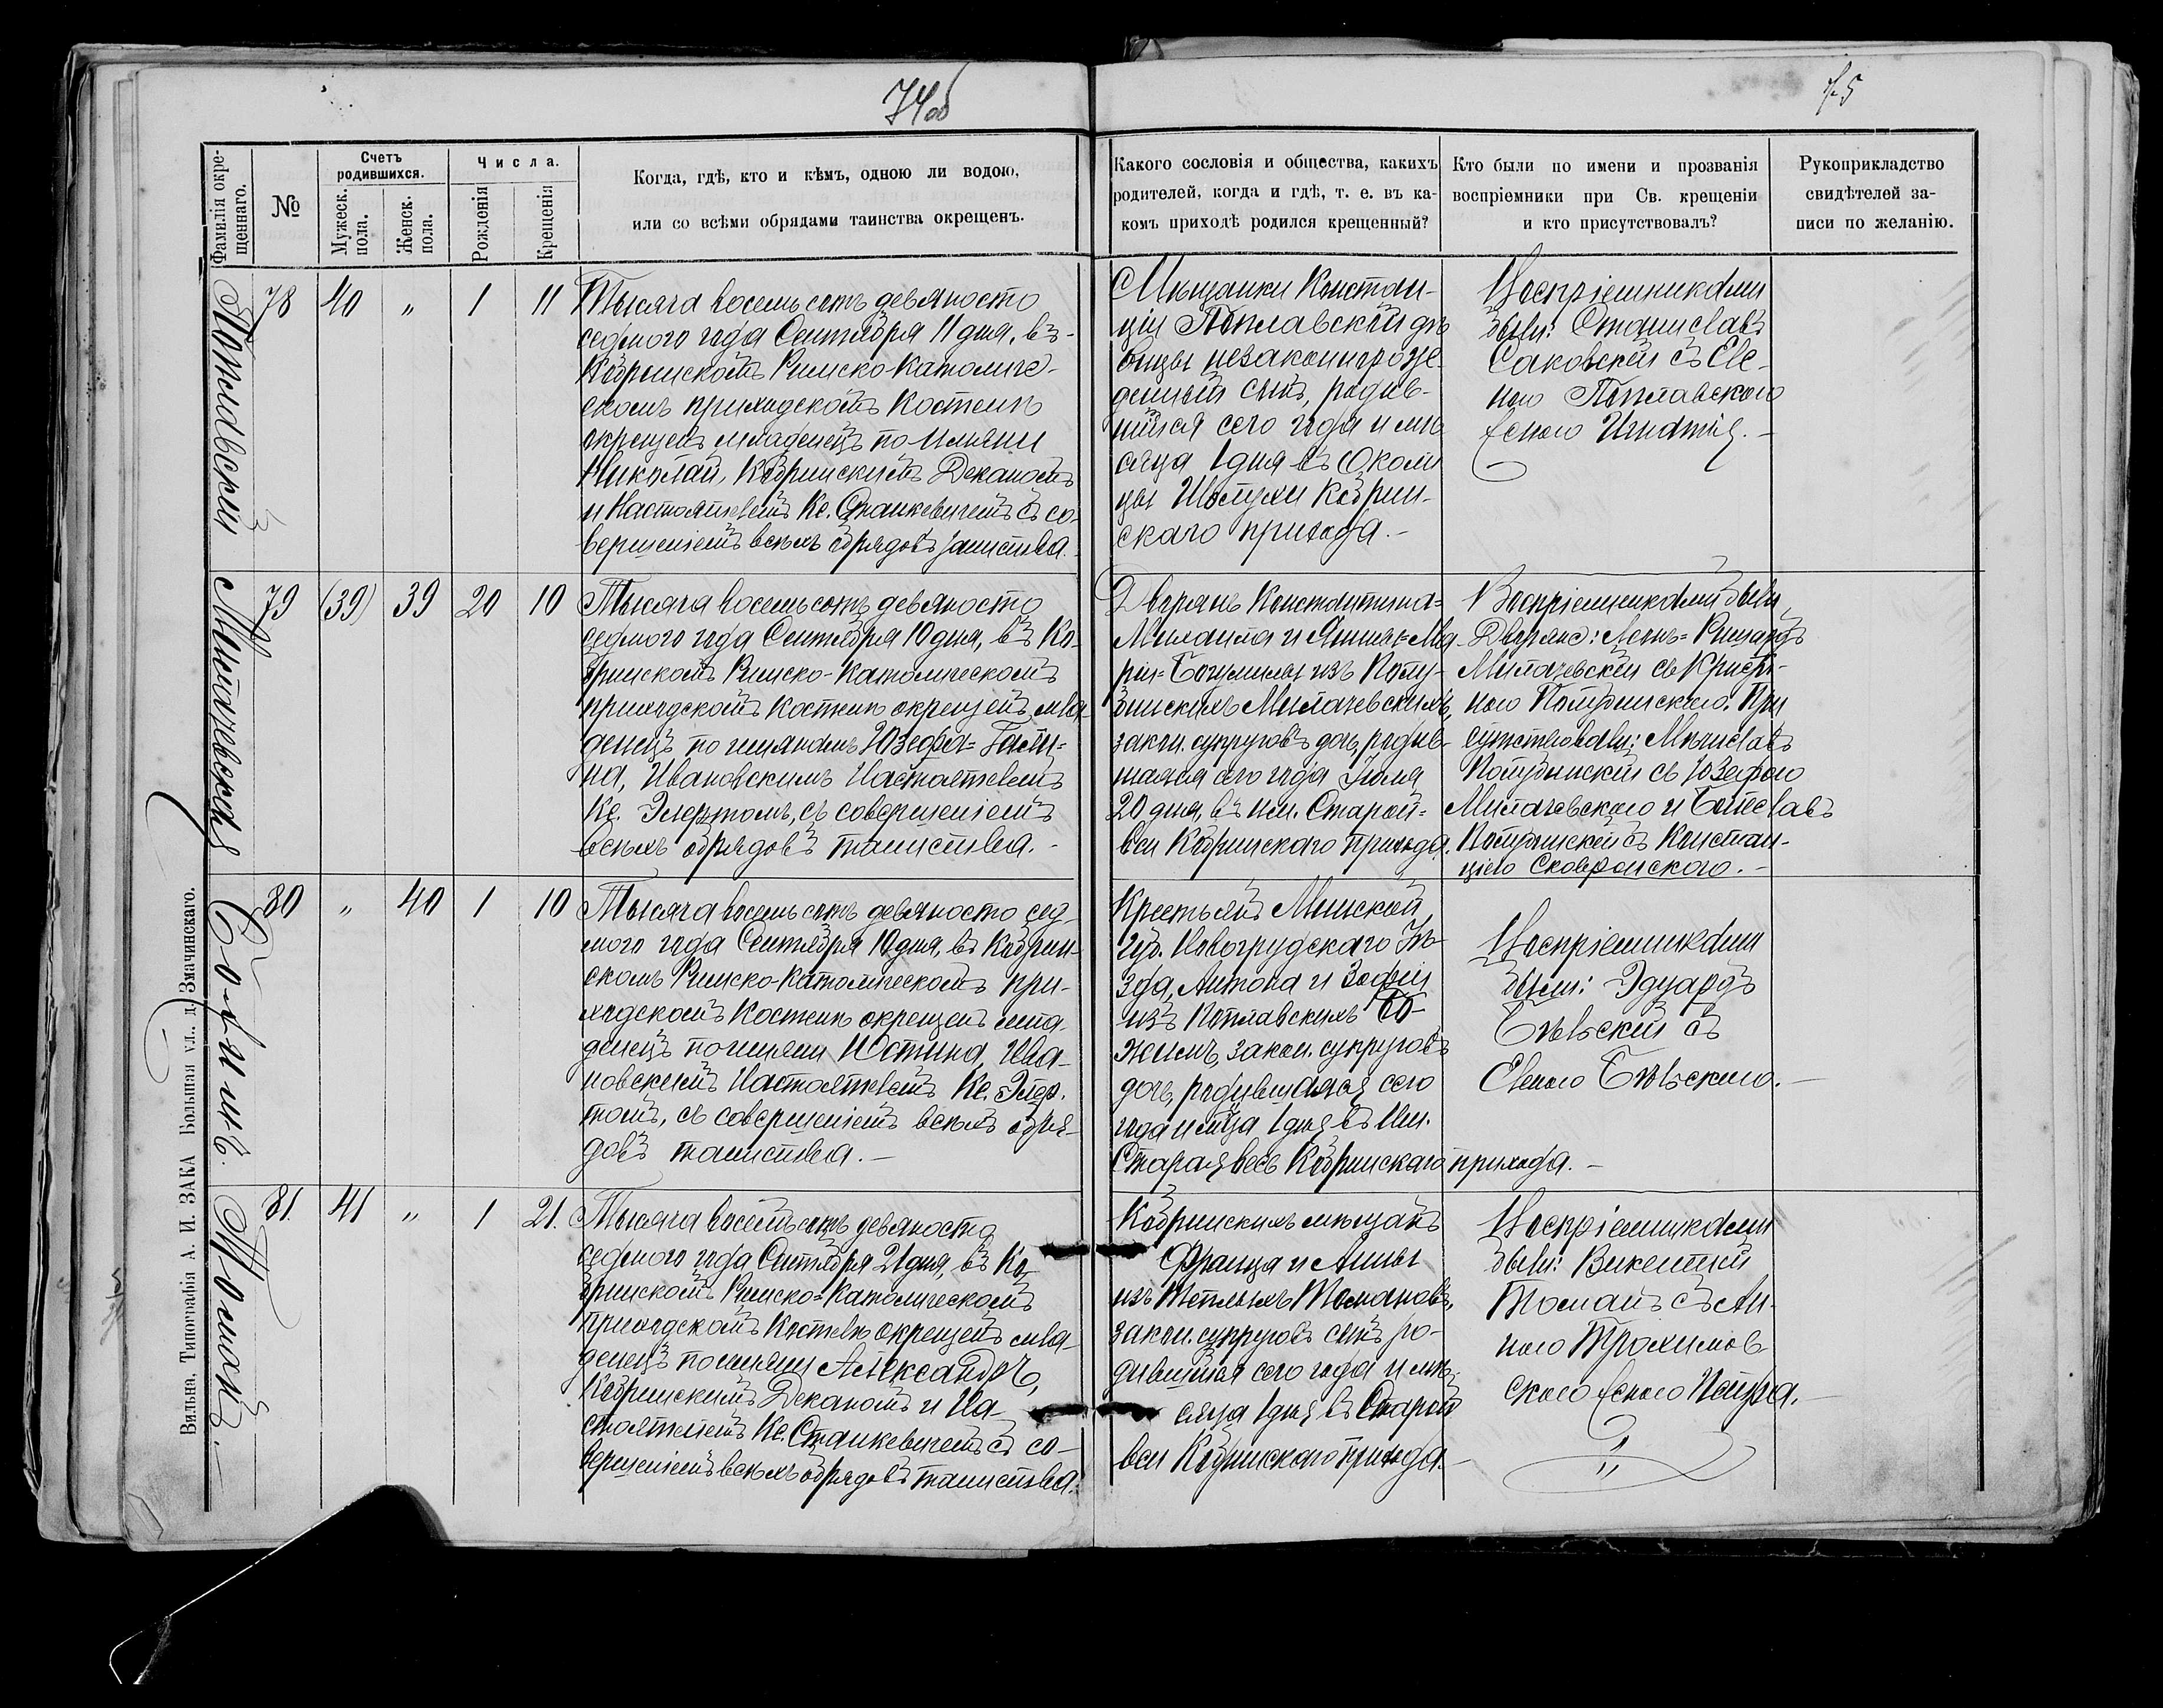 74об
75
Фамилія окре-
щеннаго.
№
Счетъ
родившихся.
Мужеск.
пола.
Женск.
пола.
Числа.
Рожденія
Крещенія
Когда, гдѣ, кто и кѣмъ, одною ли водою,
или со всѣми обрядами таинства окрещенъ.
Какого сословія и общества, какихъ
родителей, когда и гдѣ, т. е. въ ка-
комъ приходѣ родился крещенный?
Кто были по имени и прозванія
воспріемники при Св. крещеніи
и кто присутствовалъ?
Рукоприкладство
свидѣтелей за-
писи по желанію.
Поплавскій
78 40 „ 1 11
Тысяча восемьсотъ девяносто
седмого года Сентября 11 дня, въ
Кобринскомъ Римско-Католиче-
скомъ приходскомъ Костелѣ
окрещенъ младенецъ по имяни
Николай, Кобринскимъ Деканомъ
и Настоятелемъ Кс. Станкевичемъ съ со-
вершеніемъ всѣхъ обрядовъ таинства.
Мѣщанки Констан-
ціи Поплавской дѣ-
вицы незаконнорож-
денный сынъ, родив-
шійся сего года и мѣ-
сяца 1 дня въ Околи
цы Кобрин-
скаго прихода.-
Воспріемниками
были: Станиславъ
Саковскій съ Еле-
ною Поплавскою
женою Игнатія.-
Милачевская
79 (39) 39 20 10
Тысяча восемьсотъ девяносто
седмого года Сентября 10 дня, въ Ко-
бринскомъ Римско-Католическомъ
приходскомъ Костелѣ окрещенъ мла-
денецъ по имянамъ Юзефа= Гали-
на, Ивановскимъ Настоятелемъ
Кс. Элертомъ, съ совершеніемъ
всѣхъ обрядовъ таинства.-
Дворянъ Константина=
Михаила и Янины=Ма-
ріи= Богумилы изъ Полу-
бинскихъ Милачевскихъ,
закон. супруговъ дочь, родив-
шаяся сего года Іюля
20 дня, въ им. Старой=
вси Кобринскаго прихода.
Воспріемниками были,
Дворяне: Леонъ= Ришардъ
Милачевскій съ Кристи-
ною Полубинскою. При
сутствовали: Мечиславъ
Полубинскій съ Юзефою
Милачевскою и Болеславъ
Полубинскій съ Констан-
ціею Сковронскою.-
Божимъ.
80 „ 40 1 10
Тысяча восемьсотъ девяносто сед-
мого года Сентября 10 дня, въ Кобрин-
скомъ Римско-Католическомъ при-
ходскомъ Костелѣ окрещенъ мла-
денецъ по имяни Юстина, Ива-
новскимъ Настоятелемъ Кс. Элер-
томъ, съ совершеніемъ всѣхъ обря-
довъ таинства.-
Крестьянъ Минской
губ. Новогрудскаго Уѣ-
зда, Антона и Зофіи
изъ Поплавскихъ Бо-
жимъ, закон. супруговъ
дочь, родившаяся сего
года и м-ца 1 дня въ Им.
Старая весь Кобринскаго прихода.-
Воспріемниками
были: Эдуардъ
Бѣльскій съ
Еленою Бѣльскою.-
Томанъ.-
81. 41 „ 1 21.
Тысяча восемьсотъ девяносто
седмого года Сентября 21 дня, въ Ко-
бринскомъ Римско-Католическомъ
приходскомъ Костелѣ окрещенъ мла-
денецъ по имяни Александръ,
Кобринскимъ Деканомъ и На-
стоятелемъ Кс. Станкевичемъ съ со-
вершеніемъ всѣхъ обрядовъ таинства.
Кобринскихъ мѣщанъ
Франца и Анны
изъ Теплыхъ Томановъ,
закон. супруговъ сынъ ро-
дившійся сего года и мѣ-
сяца 1 дня въ Старой
вси Кобринскаго прихода.-
Воспріемниками
были: Викентій
Томанъ съ Ан-
ною Трохимов-
скою женою Петра.
Вильна. Типографія А. И. ЗАКА Большая ул., д. Змачинскаго.